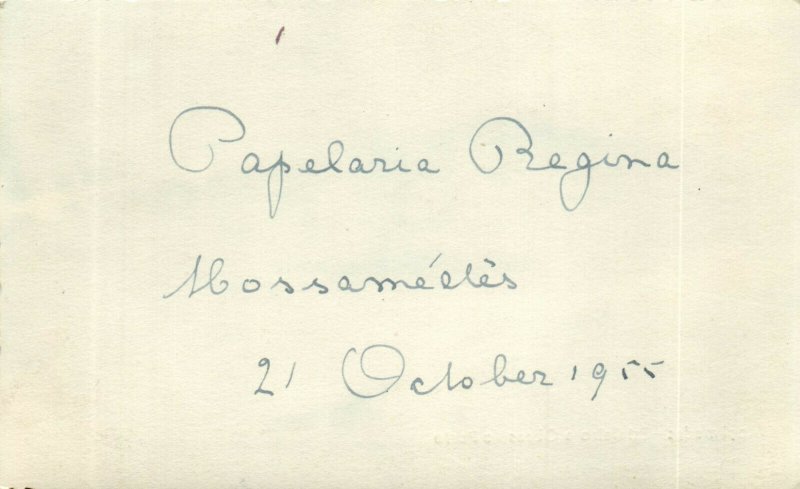 Papelaria Regina
Mossamédès
21 October 1955